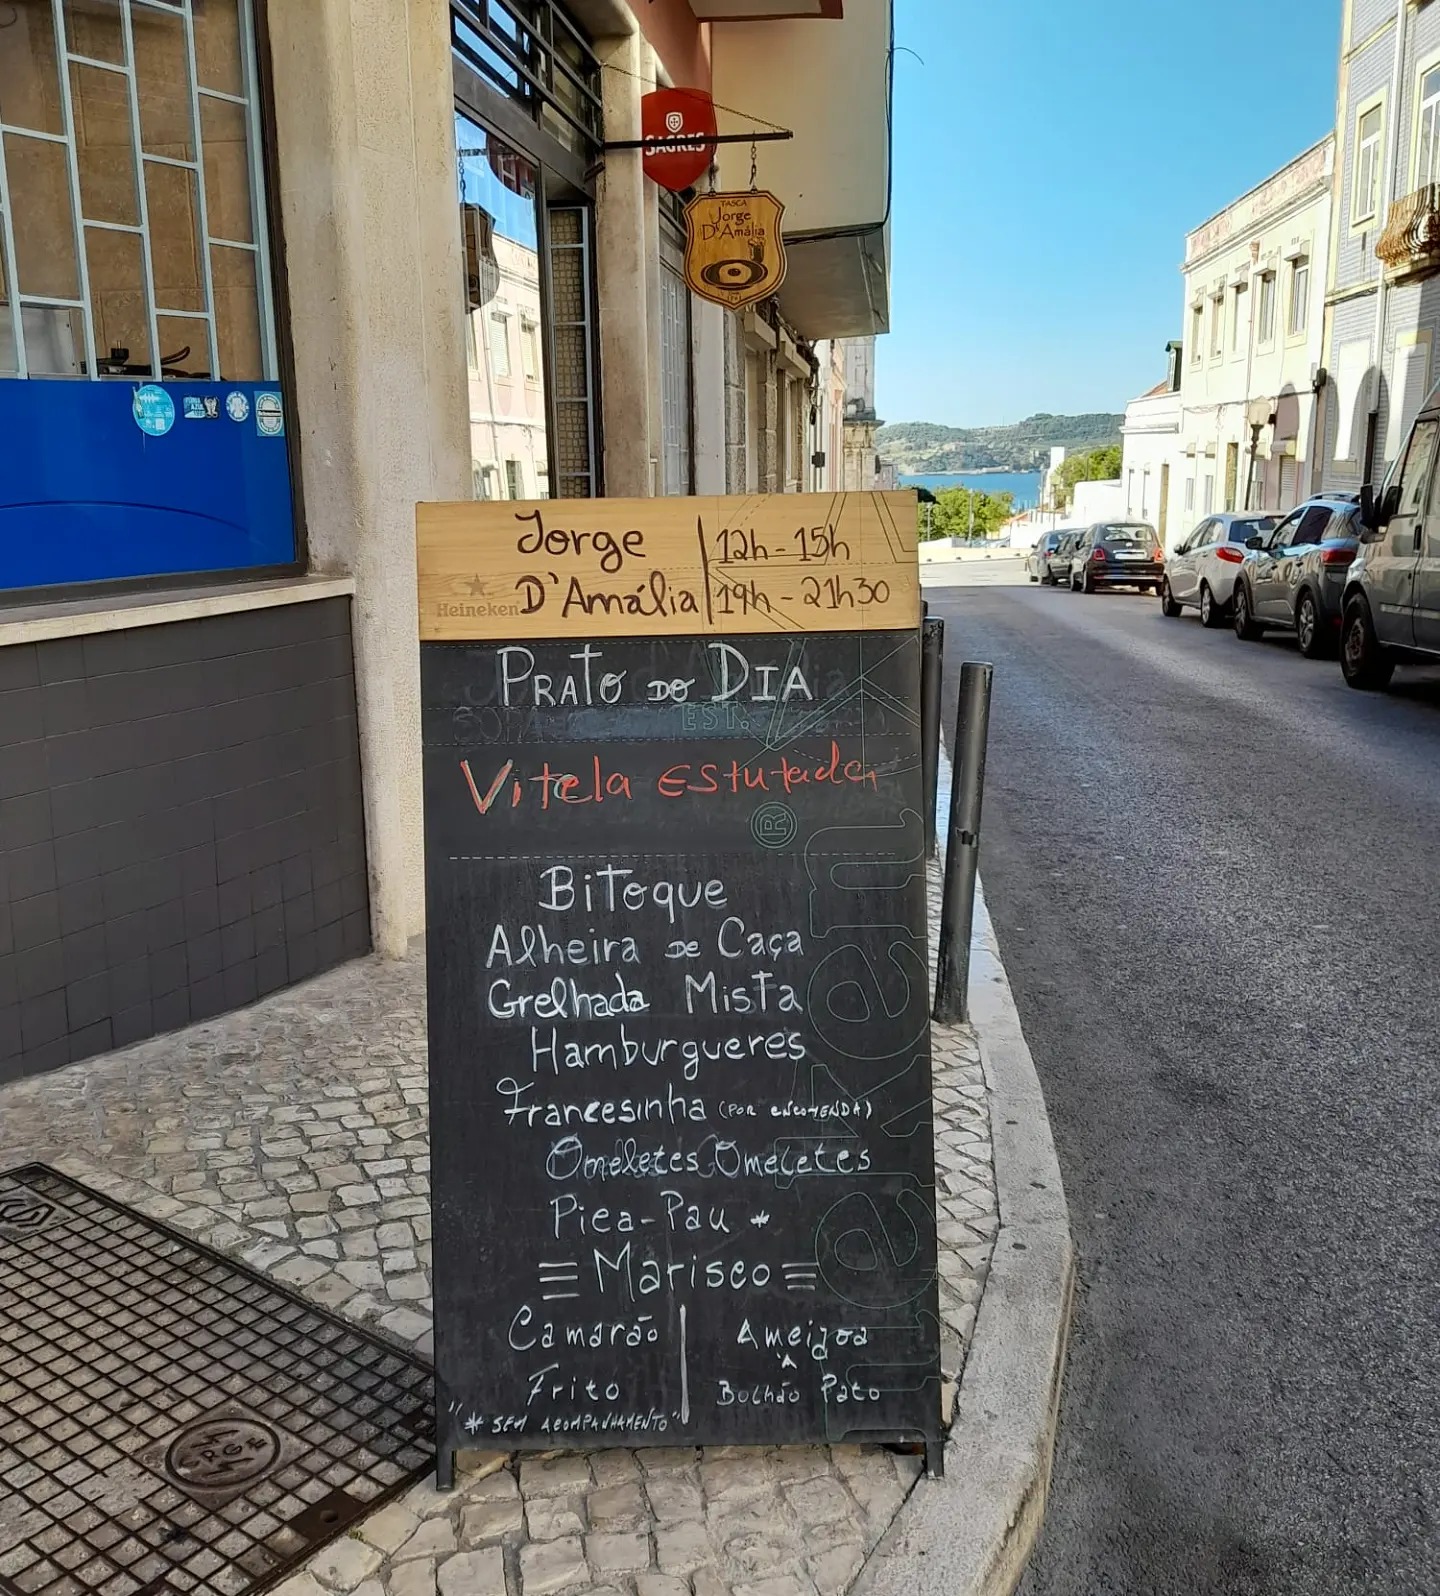 SAGRES
TASCA
Jorge
D'Amália
Jorge
D'Amália
12h - 15h
19h - 21h30
Heineken
PRATO DO DIA
EST.
Vitela Estutada
®
BiToque
Alheira de Caça
Grelhada Mista
Hamburgueres
Francesinha (POR ENCOMENDA)
Omeletes Omeletes
Pica-Pau *
Marisco
Camarão
Frito
Ameijoa
À
Bolhão Pato
"* SEM ACOMPANHAMENTO"
Heineken